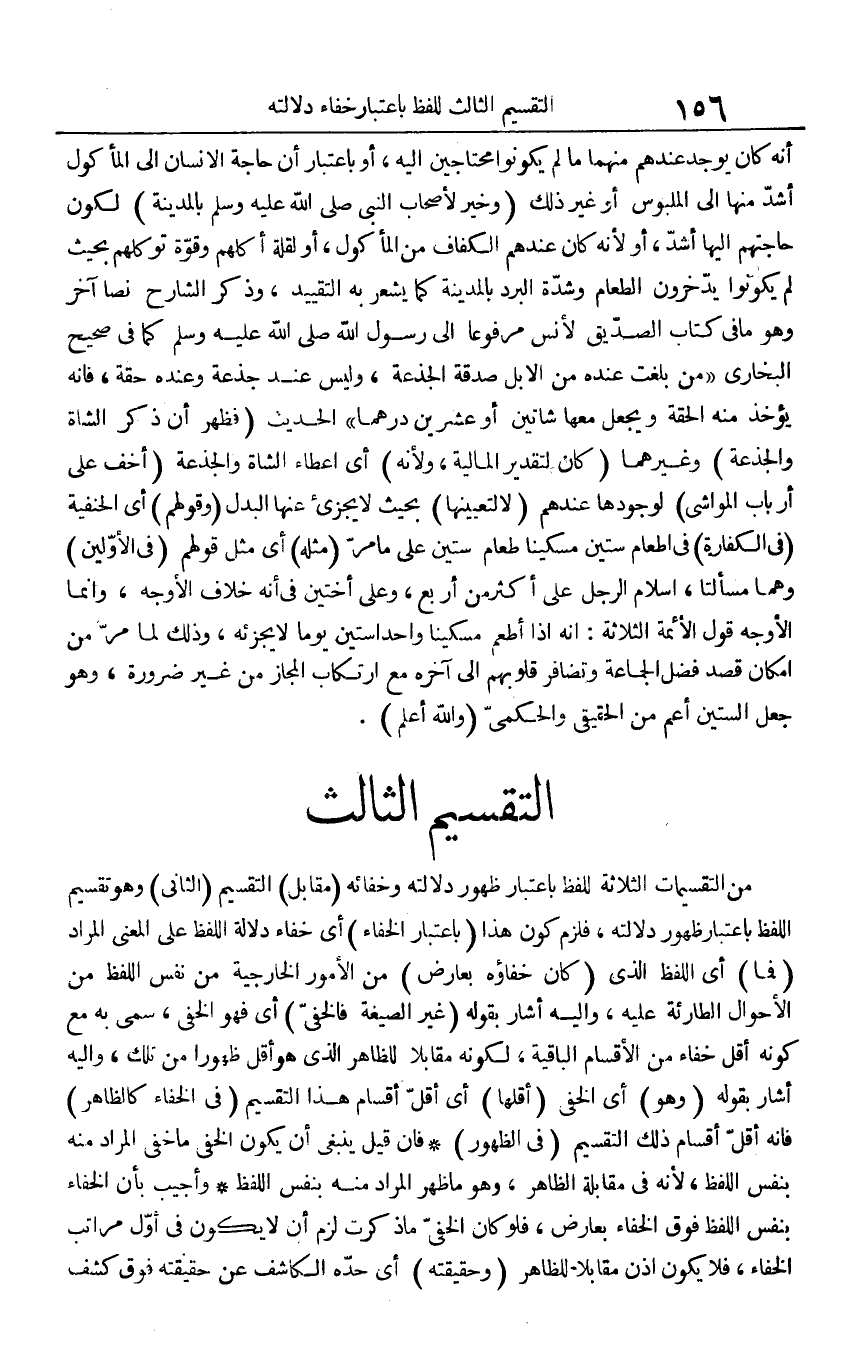 ١٥٦
التقسيم الثالث للفظ باعتبار خفاء دلالته
أنه كان يوجد عندهم منهما ما لم يكونوا محتاجين اليه ، أو باعتبار أن حاجة الانسان الى المأكول
أشدّ منها الى الملبوس أو غير ذلك (وخير لأصحاب النبى صلى الله عليه وسلم بالمدينة) لكون
حاجتهم اليها أشدّ ، أو لأنه كان عندهم الكفاف من المأكول ، أو لقلة أكلهم وقوّة توكلهم بحيث
لم يكونوا يدّخرون الطعام وشدّة البرد بالمدينة كما يشعر به التقييد ، وذكر الشارح نصا آخر
وهو مافى كتاب الصدّيق لأنس مرفوعا الى رسول الله صلى الله عليه وسلم كما فى صحيح
البخارى «من بلغت عنده من الابل صدقة الجذعة ، وليس عند جذعة وعنده حقة ، فانه
يؤخذ منه الحقة ويجعل معها شاتين أو عشرين درهما» الحديث (فظهر أن ذكر الشاة
والجذعة) وغيرهما (كان لتقدير المالية ، ولأنه) أى اعطاء الشاة والجذعة (أخف على
أرباب المواشى) لوجودها عندهم (لالتعيينها) بحيث لايجزئ عنها البدل (وقولهم) أى الحنفية
(فى الكفارة) فى اطعام ستين مسكينا طعام ستين على مامرّ (مثله) أى مثل قولهم (فى الأوّلين)
وهما مسألتا ، اسلام الرجل على أكثر من أربع ، وعلى أختين فى أنه خلاف الأوجه ، وانما
الأوجه قول الأئمة الثلاثة : انه اذا أطعم مسكينا واحدا ستين يوما لايجزئه ، وذلك لما مرّ من
امكان قصد فضل الجماعة وتضافر قلوبهم الى آخره مع ارتكاب المجاز من غير ضرورة ، وهو
جعل الستين أعم من الحقيقى والحكمىّ (والله أعلم) .
التقسيم الثالث
من التقسيمات الثلاثة للفظ باعتبار ظهور دلالته وخفائه (مقابل) التقسيم (الثانى) وهو تقسيم
اللفظ باعتبار ظهور دلالته ، فلزم كون هذا (باعتبار الخفاء) أى خفاء دلالة اللفظ على المعنى المراد
(فما) أى اللفظ الذى (كان خفاؤه بعارض) من الأمور الخارجية من نفس اللفظ من
الأحوال الطارئة عليه ، واليه أشار بقوله (غير الصيغة فالخفىّ) أى فهو الخفى ، سمى به مع
كونه أقل خفاء من الأقسام الباقية ، لكونه مقابلا للظاهر الذى هو أقل ظهورا من تلك ، واليه
أشار بقوله (وهو) أى الخفى (أقلها) أى أقلّ أقسام هذا التقسيم (فى الخفاء كالظاهر)
فانه أقلّ أقسام ذلك التقسيم (فى الظهور) * فان قيل ينبغى أن يكون الخفى ماخفى المراد منه
بنفس اللفظ ، لأنه فى مقابلة الظاهر ، وهو ماظهر المراد منه بنفس اللفظ * وأجيب بأن الخفاء
بنفس اللفظ فوق الخفاء بعارض ، فلو كان الخفىّ ماذكرت لزم أن لايكون فى أوّل مراتب
الخفاء ، فلا يكون اذن مقابلا للظاهر (وحقيقته) أى حدّه الكاشف عن حقيقته فوق كشف